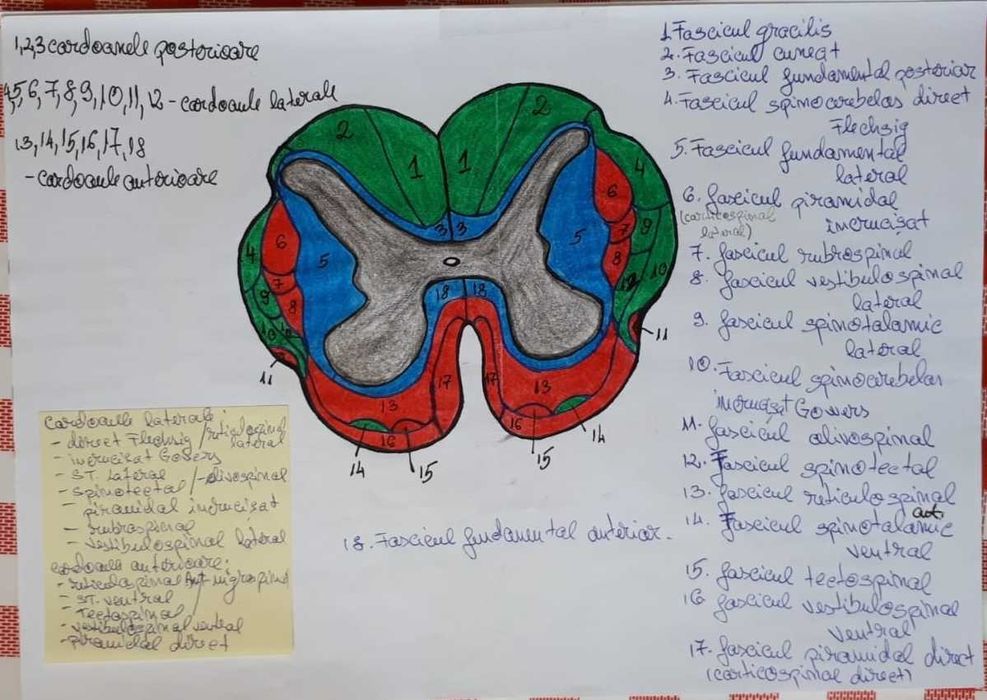 1,2,3 cordoanele posterioare
4,5,6,7,8,9,10,11,12 - cordoanle laterale
13,14,15,16,17,18
- cordoanle anterioare
1. Fascicul gracilis
2. Fascicul cuneat
3. Fascicul fundamental posterior
4. Fascicul spinocerebelos direct
Flechsig
5. Fascicul fundamental
lateral
6. fascicul piramidal
(corticospinal incrucisat
lateral)
7. fascicul rubrospinal
8. fascicul vestibulospinal
lateral
9. fascicul spinotalamic
lateral
10. Fascicul spinocerebelos
incrucisat Gowers
11. fascicul olivospinal
12. Fascicul spinotectal
13. fascicul reticulospinal
ant.
14. Fascicul spinotalamic
ventral
15. fascicul tectospinal
16 fascicul vestibulospinal
ventral
17. fascicul piramidal direct
(corticospinal direct)
18. Fascicul fundamental anterior.
2 1 1 2
3 3
4 6 5 7 8 9 10 11
5 6 7 8 4 9 10 12 11
18 18
17 17
13 13
16 16
14 15 15 14
cordoanle laterale:
- direct Flechsig / reticulospinal
lateral
- incrucisat Gowers
- ST. lateral / - olivospinal
- spinotectal
- piramidal incrucisat
- rubrospinal
- vestibulospinal lateral
cordoanle anterioare:
- reticulospinal ant - nigrospinal
- ST. ventral
- Tectospinal
- vestibulospinal ventral
- piramidal direct